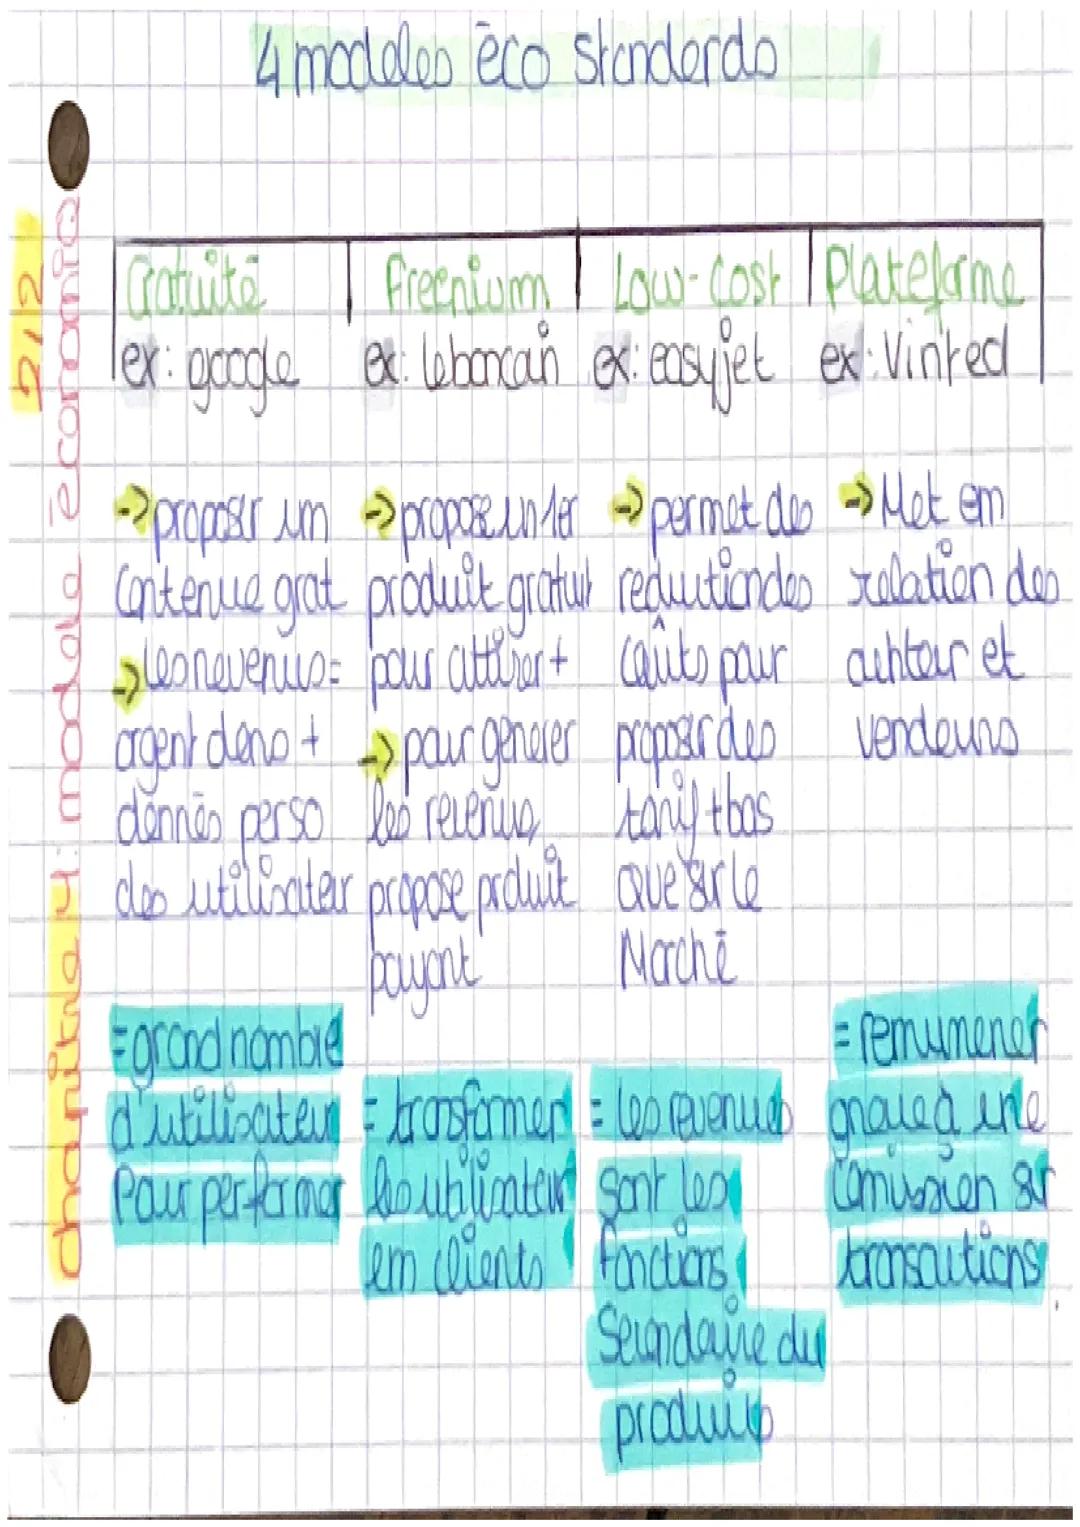 4 modeles éco standards
2/12
chapitre 4: modele économie
Gratuité
ex: google
→ proposer um
contenue grat
→ les revenus =
argent dans +
donnés perso
des utilisateur
= grand nombre
d'utilisateur
Pour performer
Freenium
ex: leboncoin
→ propose un 1er
produit gratuit
pour attirer +
→ pour génerer
les revenus,
propose produit
payant
= transformer
les utilisateur
em clients
Low-Cost
ex: easyjet
→ permet des
reductiondes
coûts pour
proposer des
tarif + bas
que sur le
Marché
= les revenues
sont les
fonctions
Secondaire du
produits
Plateforme
ex: Vinted
→ Met em
relation des
achteur et
vendeurs
= remumener
une
comission sur
transactions